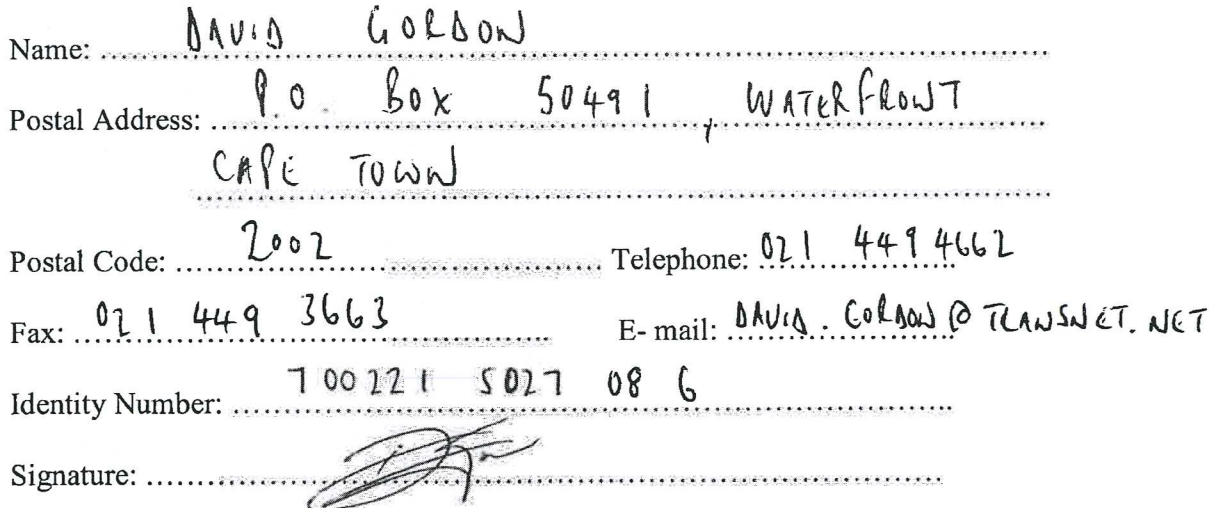 Name: DAVID GORDON
Postal Address: P.O. BOX 50491, WATERFRONT
CAPE TOWN
Postal Code: 2002 Telephone: 021 449 4662
Fax: 021 449 3663 E- mail: DAVID.GORDON@TRANSNET.NET
Identity Number: 700221 5027 08 6
Signature: